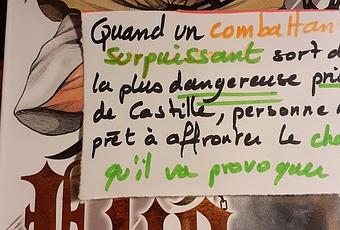 Quand un combattan
surpuissant sort d
la plus dangereuse pri
de Castille, personne
prêt à affronter le cha
qu'il va provoquer